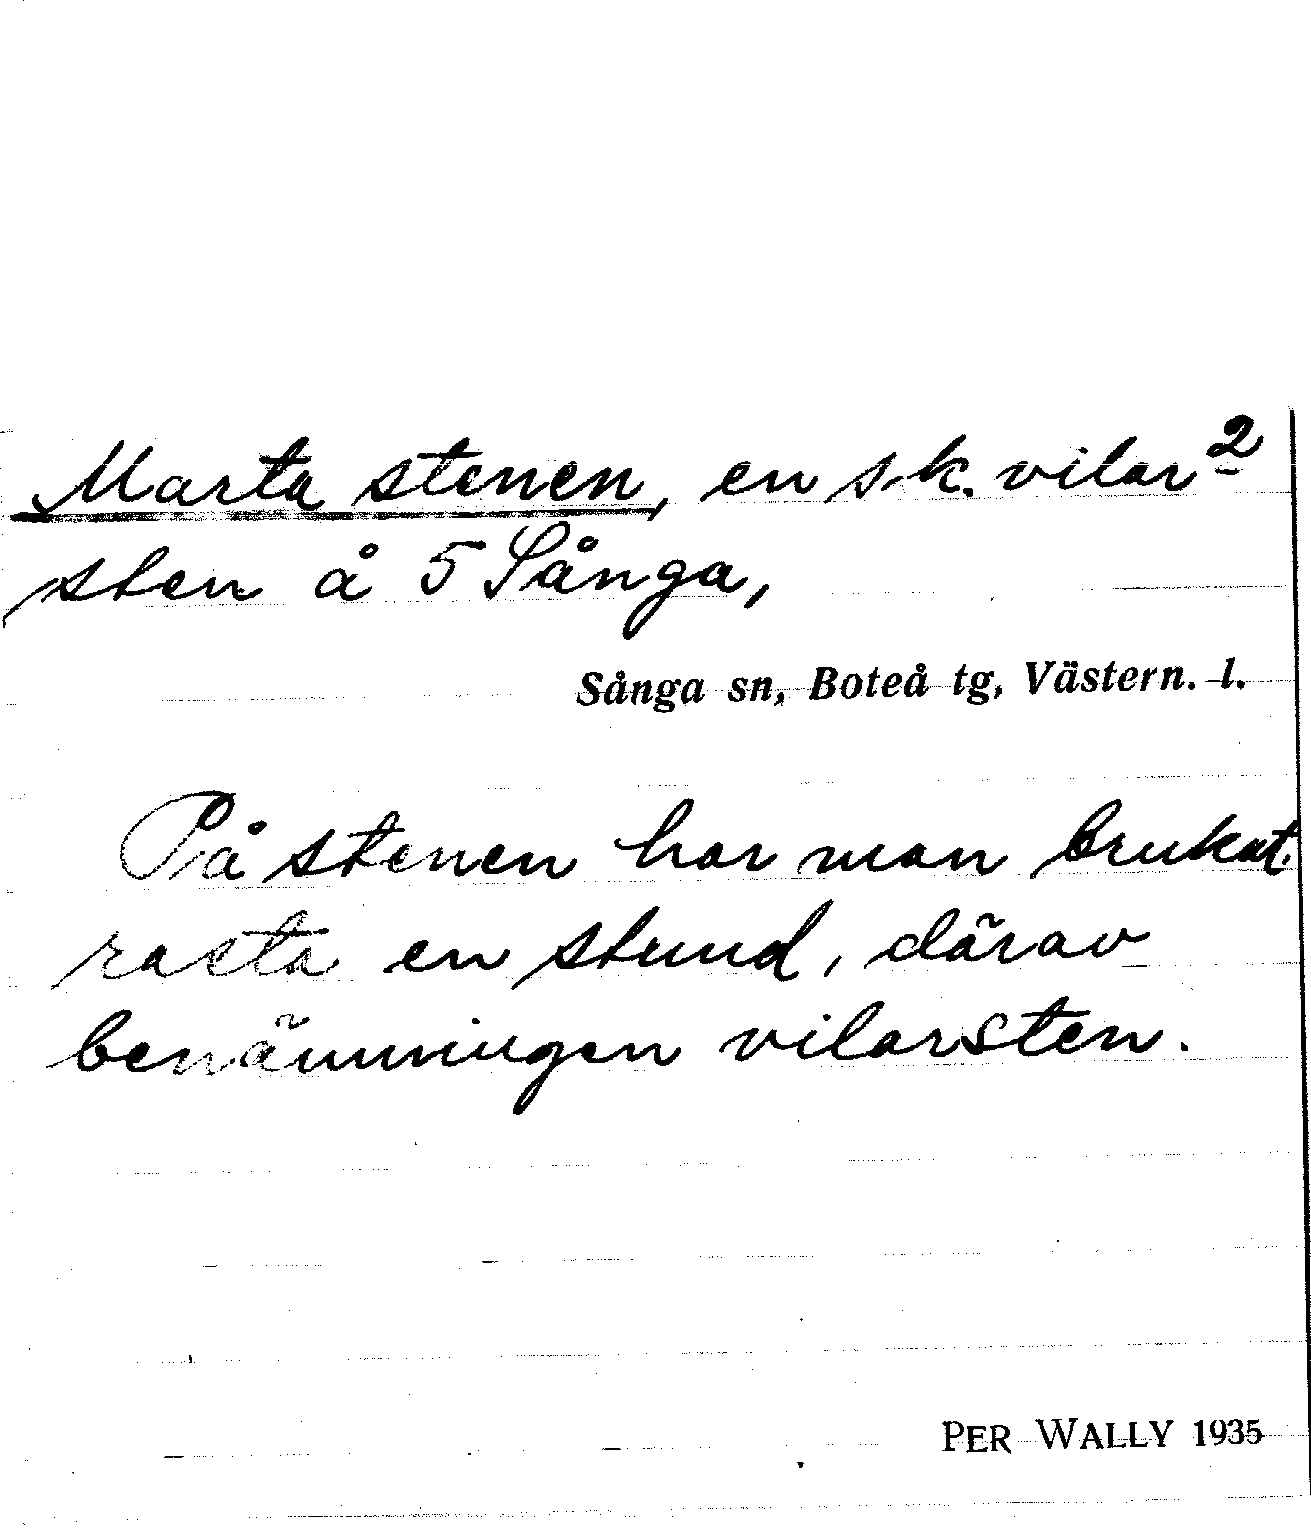 Marta stenen, en s.k. vilar 2
sten å 5 Sånga,
Sånga sn, Boteå tg, Västern. l.
På stenen har man brukat
rasta en stund, därav
benämningen vilarsten.
PER WALLY 1935